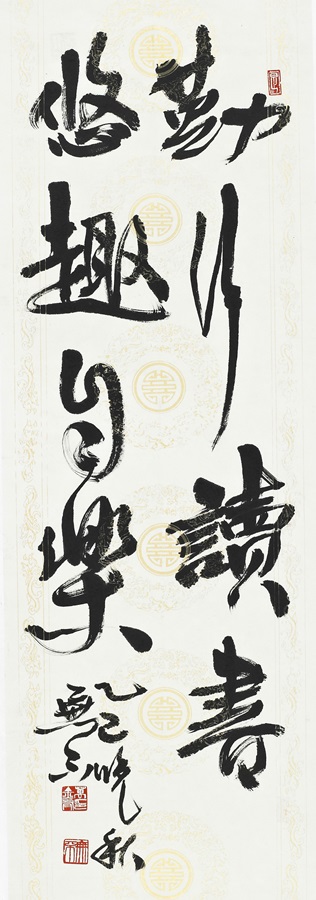 勤行讀書
悠趣自樂
乙巳晚秋